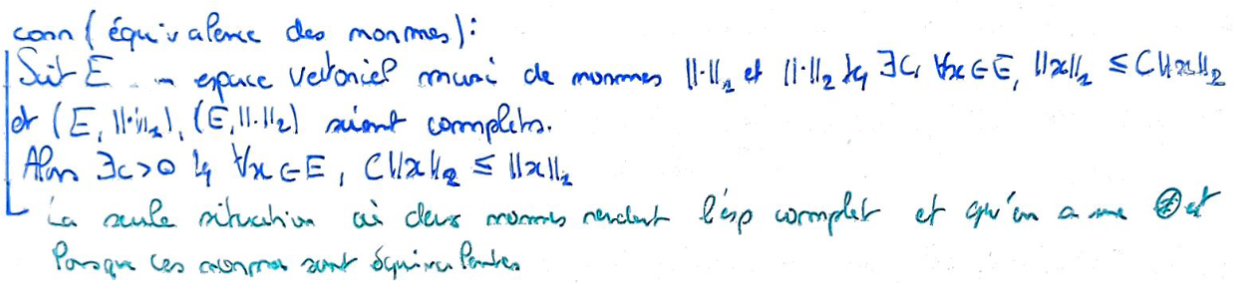 coro (équivalence des normes):
Soit E un espace vectoriel muni de normes ||·||₁ et ||·||₂ tq ∃C, ∀x∈E, ||x||₁ ≤ C||x||₂
et (E, ||·||₁), (E, ||·||₂) soient complets.
Alors ∃c>0 tq ∀x∈E, C||x||₂ ≤ ||x||₁
La seule situation où deux normes rendent l'esp complet et qu'on a une est
lorsque ces normes sont équivalentes